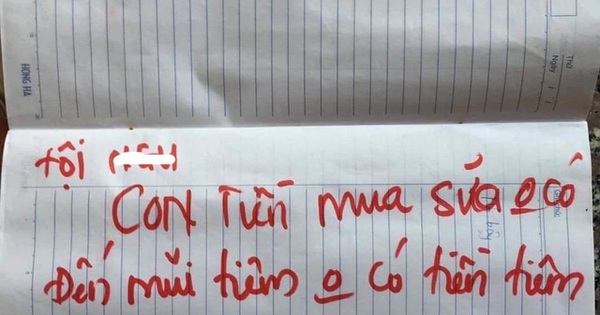 HONG HA
Thứ
Ngày / /
tội
CON Tiền mua sữa o có
Đến mũi tiêm o có tiền tiêm